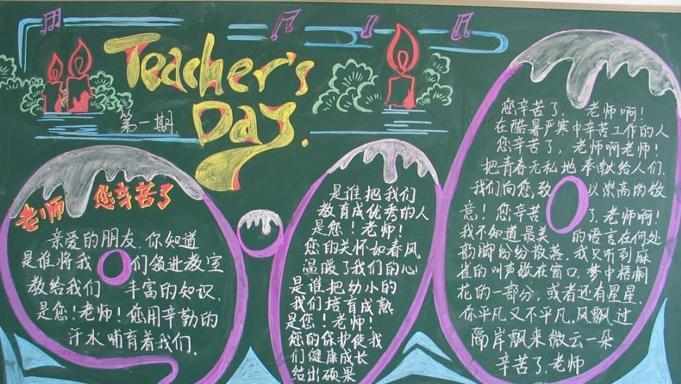 Teacher's
Day.
第一期
老师 您辛苦了
亲爱的朋友,你知道
是谁将我们领进教室
教给我们丰富的知识.
是您!老师!您用辛勤的
汗水哺育着我们.
是谁把我们
教育成优秀的人
是您!老师!
您的关怀如春风
温暖了我们的心
是谁把幼小的
我们培育成熟
是您!老师!
您的保护使我
们健康成长
结出硕果
您辛苦了,老师啊!
在酷暑严寒中辛苦工作的人
您辛苦了,老师啊老师!
把青春无私地奉献给人们.
我们向您致以崇高的敬
意!您辛苦了.老师啊!
我不知道最美的语言在何处
韵脚纷纷散落.我又听到麻
雀的叫声歇在窗口.梦中梧桐
花的一部分,或者还有星星.
你平凡又不平凡.风飘过
隔岸飘来微云一朵
辛苦了.老师